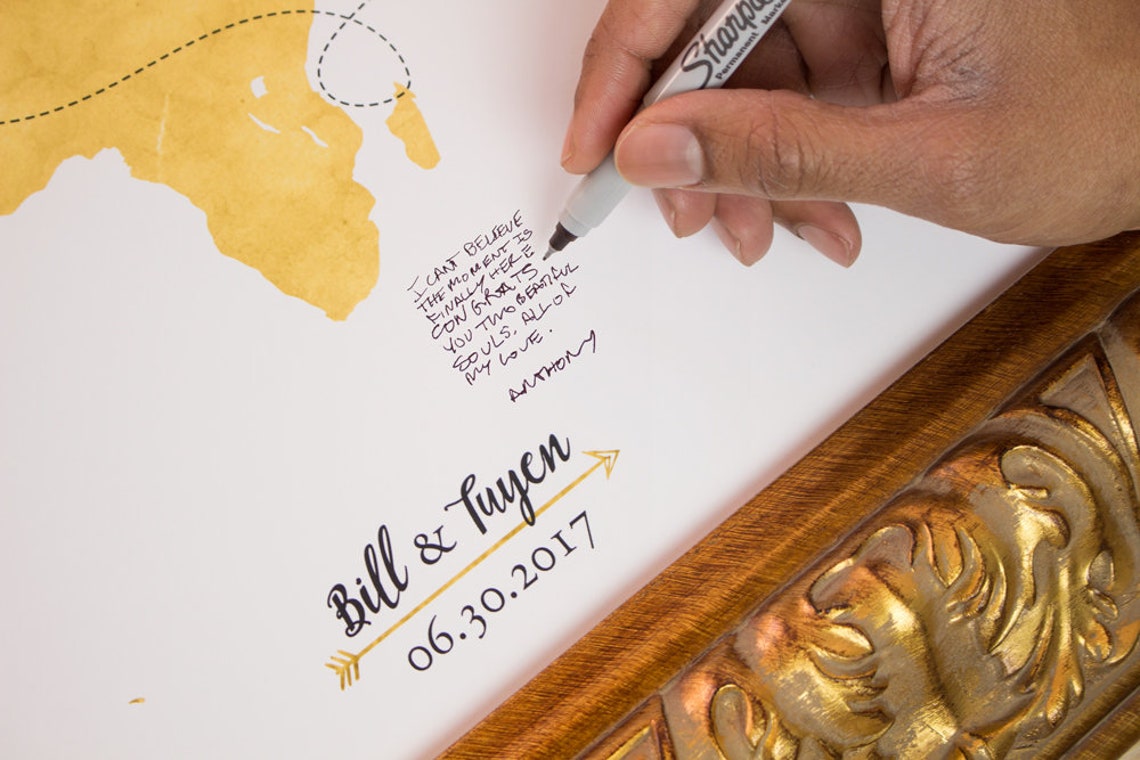 Sharpie
Permanent Marker
I CANT BELIEVE
THE MOMENT IS
FINALLY HERE
CONGRATS
YOU TWO BEATIFUL
SOULS, ALL OF
MY LOVE.
ANTHONY
Bill & Tuyen
06.30.2017